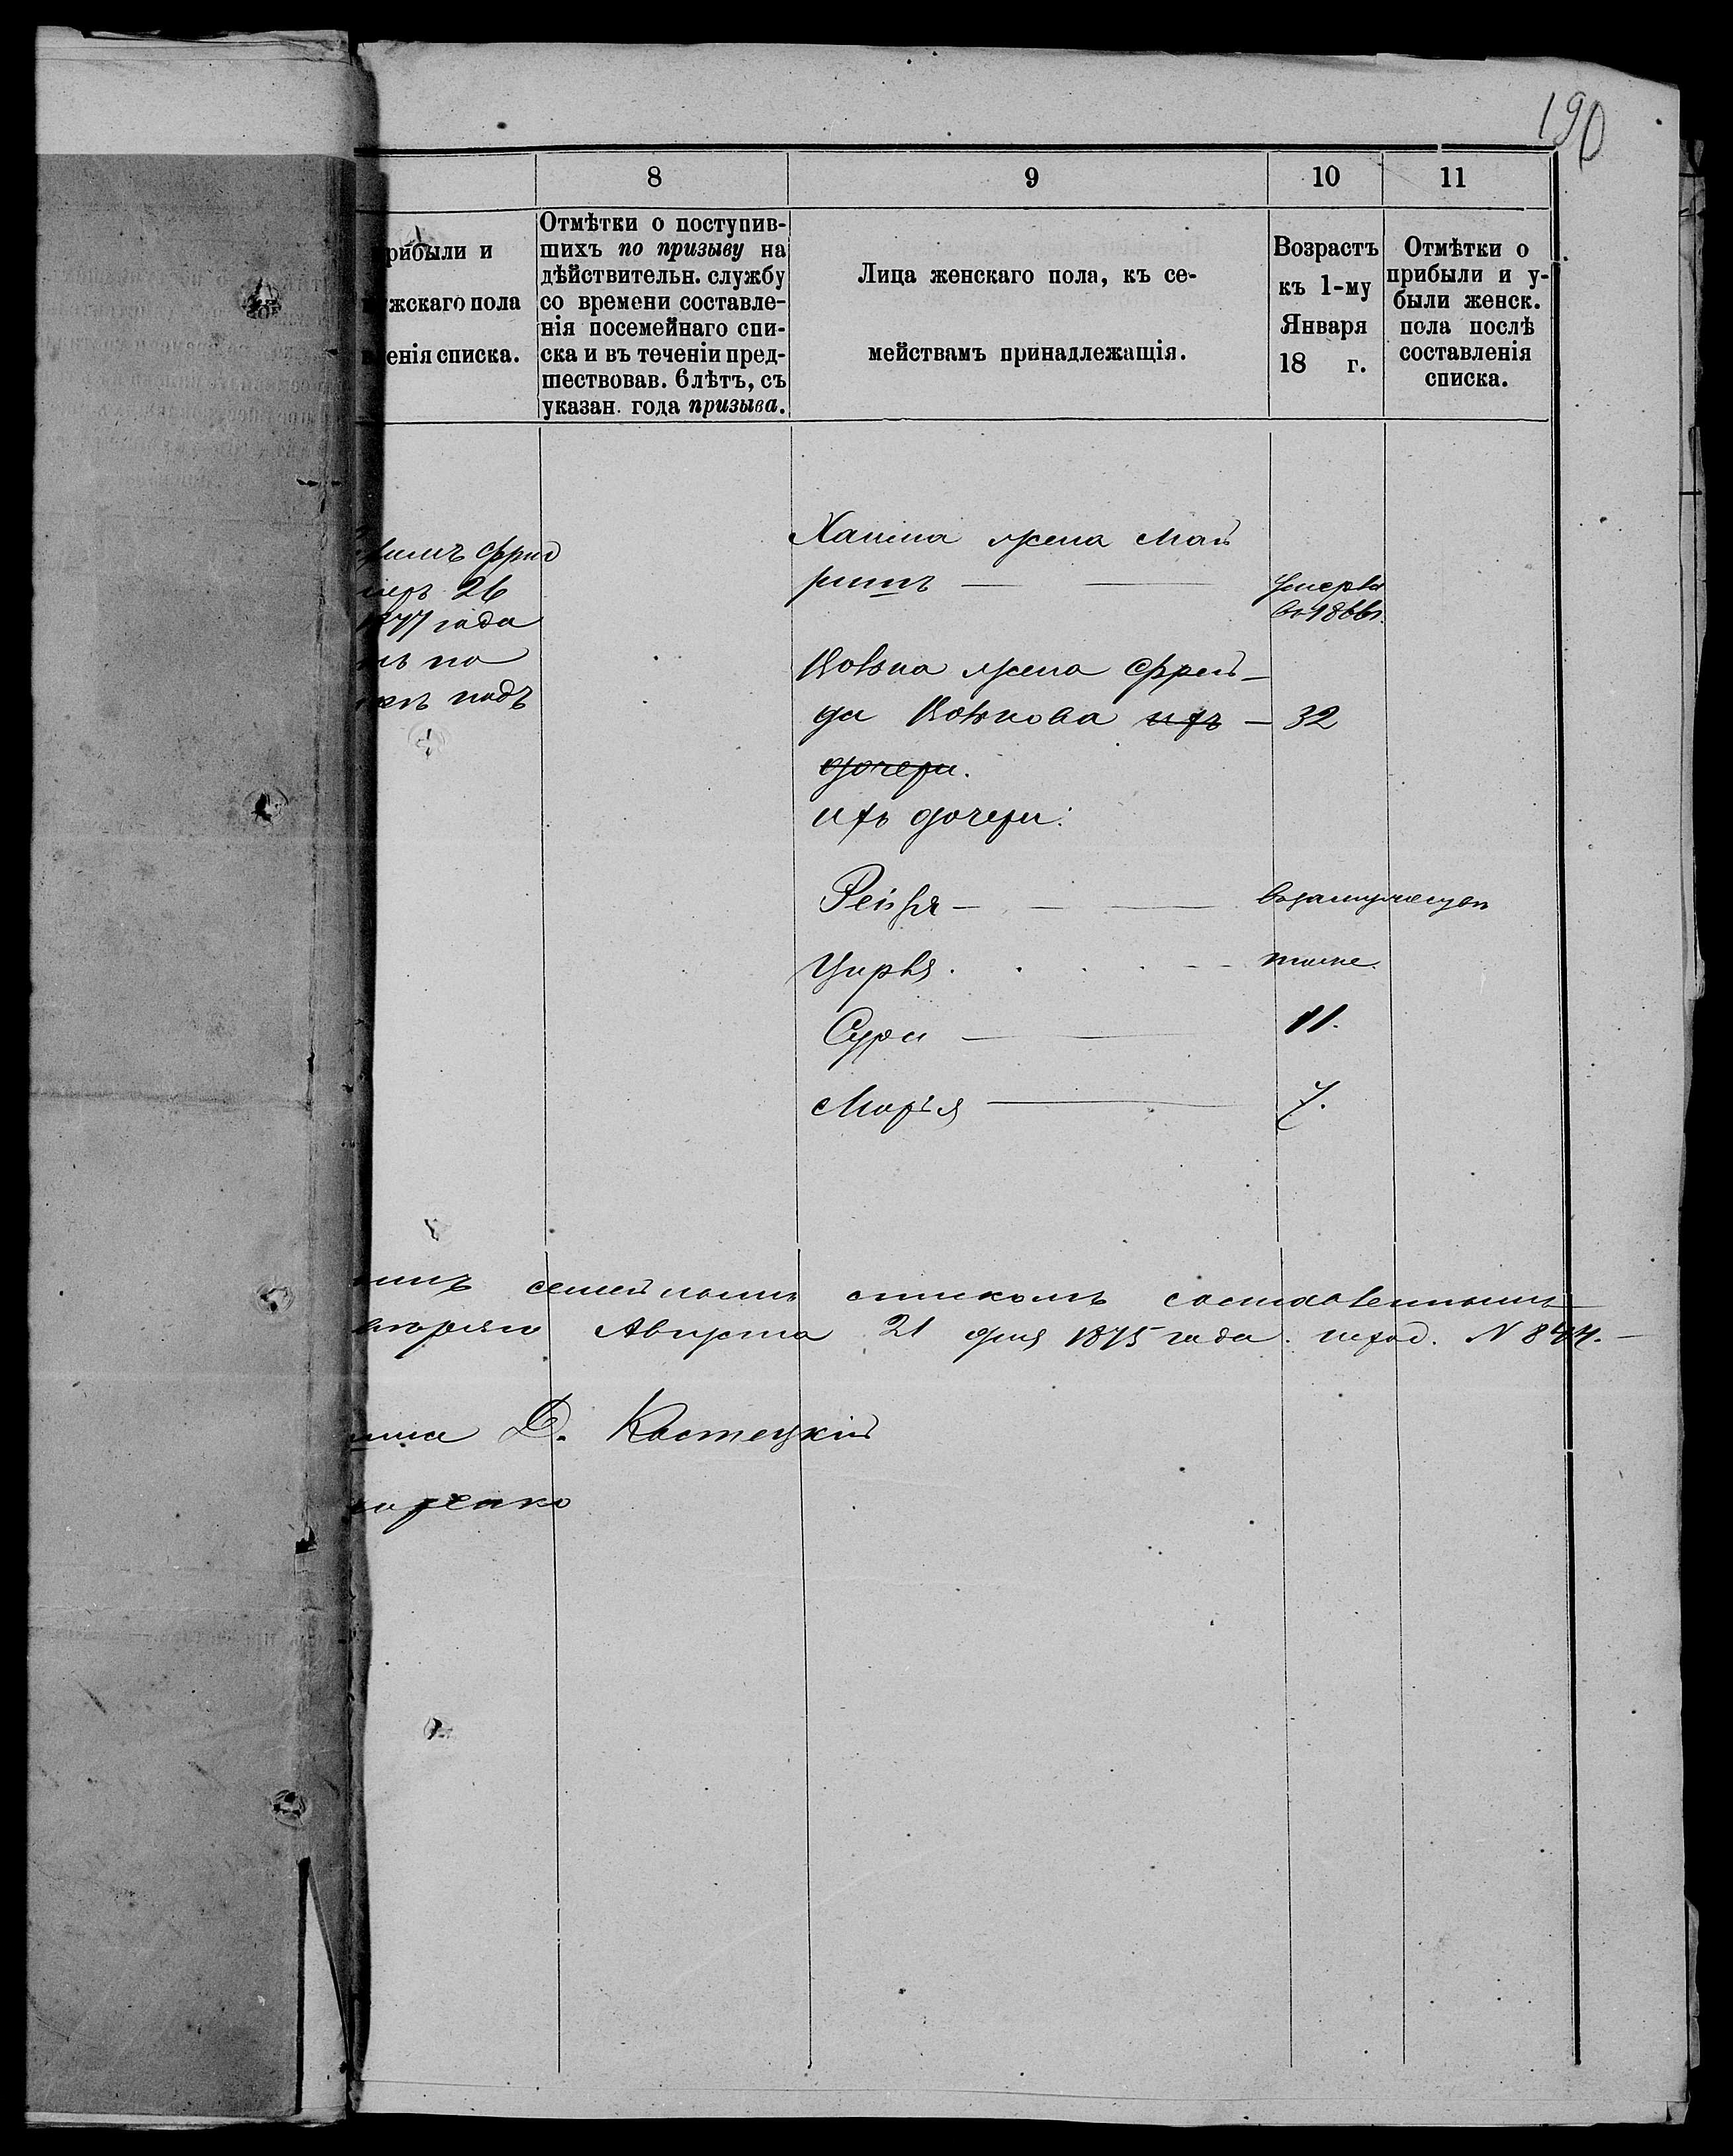 190
8 9 10 11
рибыли и
жскаго пола
енія списка.
Отмѣтки о поступив-
шихъ по призыву на
дѣйствительн. службу
со времени составле-
нія посемейнаго спи-
ска и въ теченіи пред-
шествовав. 6 лѣтъ, съ
указан. года призыва.
Лица женскаго пола, къ се-
мействамъ принадлежащія.
Возрастъ
къ 1-му
Января
18 г.
Отмѣтки о
прибыли и у-
были женск.
пола послѣ
составленія
списка.
26
1877 года
по
подъ
жена
умерла
въ 1866 г.
жена
ихъ — 32
дочери.
ихъ дочери:
Рейзя — въ замужеств
Цирля тоже.
Сура — 11.
Марія — 7.
семейнымъ спискомъ составленнымъ
Августа 21 дня 1875 года. исход. N 844.
Д. Костецкій